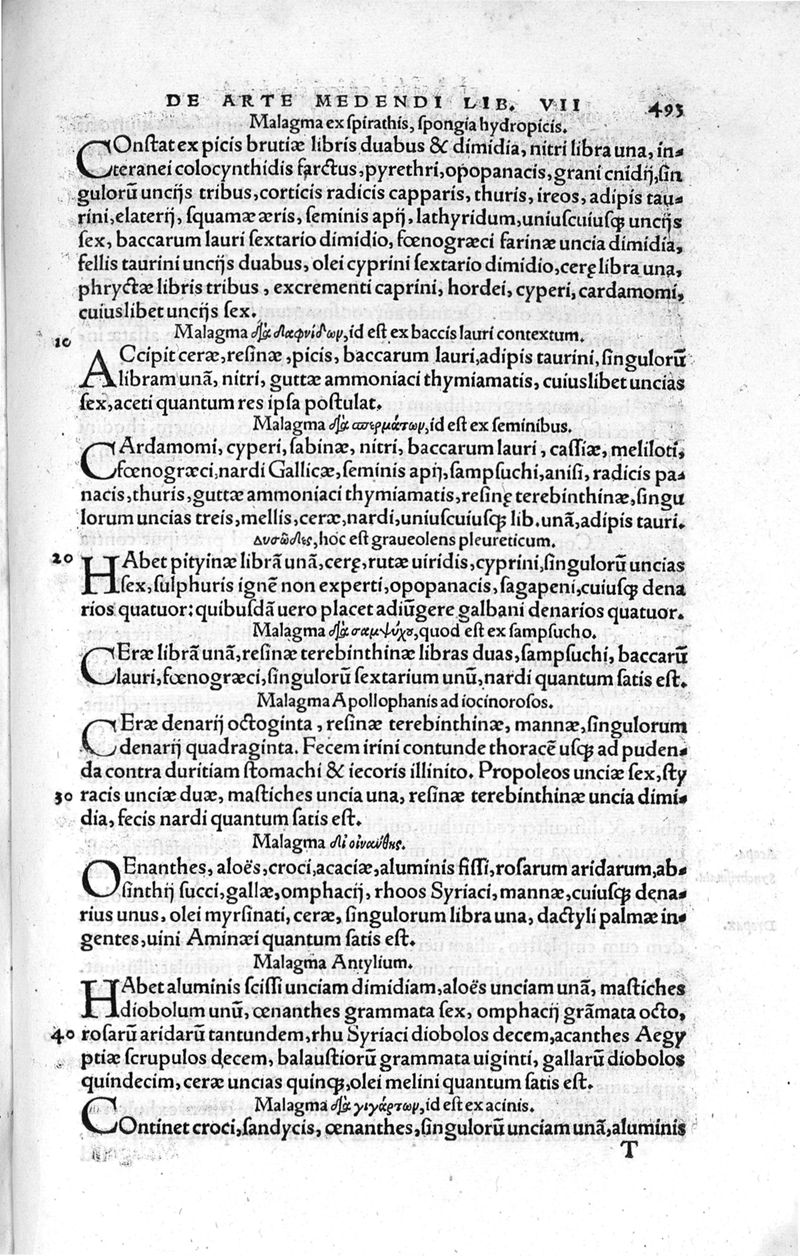 DE ARTE MEDENDI LIB. VII 493
Malagma ex spirathis, spongia hydropicis.
COnstat ex picis brutiæ libris duabus & dimidia, nitri libra una, in-
teranei colocynthidis farctus, pyrethri, opopanacis, grani cnidij, sin
gulorũ uncijs tribus, corticis radicis capparis, thuris, ireos, adipis tau-
rini, elaterij, squamæ æris, seminis apij, lathyridum, uniuscuiusq; uncijs
sex, baccarum lauri sextario dimidio, fœnogræci farinæ uncia dimidia,
fellis taurini uncijs duabus, olei cyprini sextario dimidio, cerę libra una,
phryctæ libris tribus, excrementi caprini, hordei, cyperi, cardamomi,
cuiuslibet uncijs sex.
10 Malagma διὰ δαφνίδων, id est ex baccis lauri contextum.
ACcipit ceræ, resinæ, picis, baccarum lauri, adipis taurini, singulorũ
libram unã, nitri, guttæ ammoniaci thymiamatis, cuiuslibet uncias
sex, aceti quantum res ipsa postulat.
Malagma διὰ σπερμάτων, id est ex seminibus.
CArdamomi, cyperi, sabinæ, nitri, baccarum lauri, cassiæ, meliloti,
fœnogræci, nardi Gallicæ, seminis apij, sampsuchi, anisi, radicis pa-
nacis, thuris, guttæ ammoniaci thymiamatis, resinę terebinthinæ, singu
lorum uncias treis, mellis, ceræ, nardi, uniuscuiusq; lib. unã, adipis tauri.
Δυσῶδες, hoc est graueolens pleureticum.
20 HAbet pityinæ librã unã, cerę, rutæ uiridis, cyprini, singulorũ uncias
sex, sulphuris ignẽ non experti, opopanacis, sagapeni, cuiusq; dena
rios quatuor: quibusdã uero placet adiũgere galbani denarios quatuor.
Malagma διὰ σαμψύχου, quod est ex sampsucho.
CEræ librã unã, resinæ terebinthinæ libras duas, sampsuchi, baccarũ
lauri, fœnogræci, singulorũ sextarium unũ, nardi quantum satis est.
Malagma Apollophanis ad iocinorosos.
CEræ denarij octoginta, resinæ terebinthinæ, mannæ, singulorum
denarij quadraginta. Fecem irini contunde thoracẽ usq; ad puden-
da contra duritiam stomachi & iecoris illinito. Propoleos unciæ sex, sty
30 racis unciæ duæ, mastiches uncia una, resinæ terebinthinæ uncia dimi-
dia, fecis nardi quantum satis est.
Malagma δι οἰνάνθης.
OEnanthes, aloës, croci, acaciæ, aluminis fissi, rosarum aridarum, ab-
sinthij succi, gallæ, omphacij, rhoos Syriaci, mannæ, cuiusq; dena-
rius unus, olei myrsinati, ceræ, singulorum libra una, dactyli palmæ in-
gentes, uini Aminæi quantum satis est.
Malagma Antylium.
HAbet aluminis scissi unciam dimidiam, aloës unciam unã, mastiches
diobolum unũ, œnanthes grammata sex, omphacij grãmata octo,
40 rosarũ aridarũ tantundem, rhu Syriaci diobolos decem, acanthes Aegy
ptiæ scrupulos decem, balaustiorũ grammata uiginti, gallarũ diobolos
quindecim, ceræ uncias quinq;, olei melini quantum satis est.
Malagma διὰ γιγάρτων, id est ex acinis.
COntinet croci, sandycis, œnanthes, singulorũ unciam unã, aluminis
T